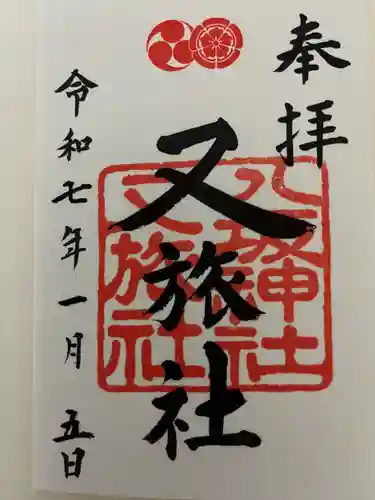 奉拝
又旅社
八坂神社
又旅社
令和七年一月五日